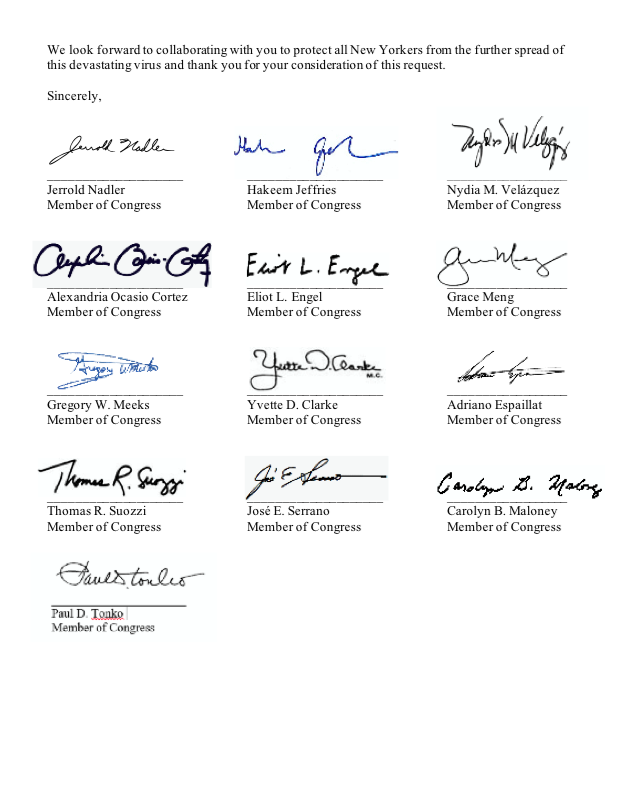 We look forward to collaborating with you to protect all New Yorkers from the further spread of
this devastating virus and thank you for your consideration of this request.
Sincerely,
Jerrold Nadler
Jerrold Nadler
Member of Congress
Hakeem Jeffries
Member of Congress
Nydia M Velázquez
Nydia M. Velázquez
Member of Congress
Alexandria Ocasio Cortez
Member of Congress
Eliot L. Engel
Eliot L. Engel
Member of Congress
Grace Meng
Grace Meng
Member of Congress
Gregory W. Meeks
Member of Congress
Yvette D. Clarke
M.C.
Yvette D. Clarke
Member of Congress
Adriano Espaillat
Member of Congress
Thomas R. Suozzi
Thomas R. Suozzi
Member of Congress
José E. Serrano
José E. Serrano
Member of Congress
Carolyn B. Maloney
Carolyn B. Maloney
Member of Congress
Paul D. Tonko
Paul D. Tonko
Member of Congress